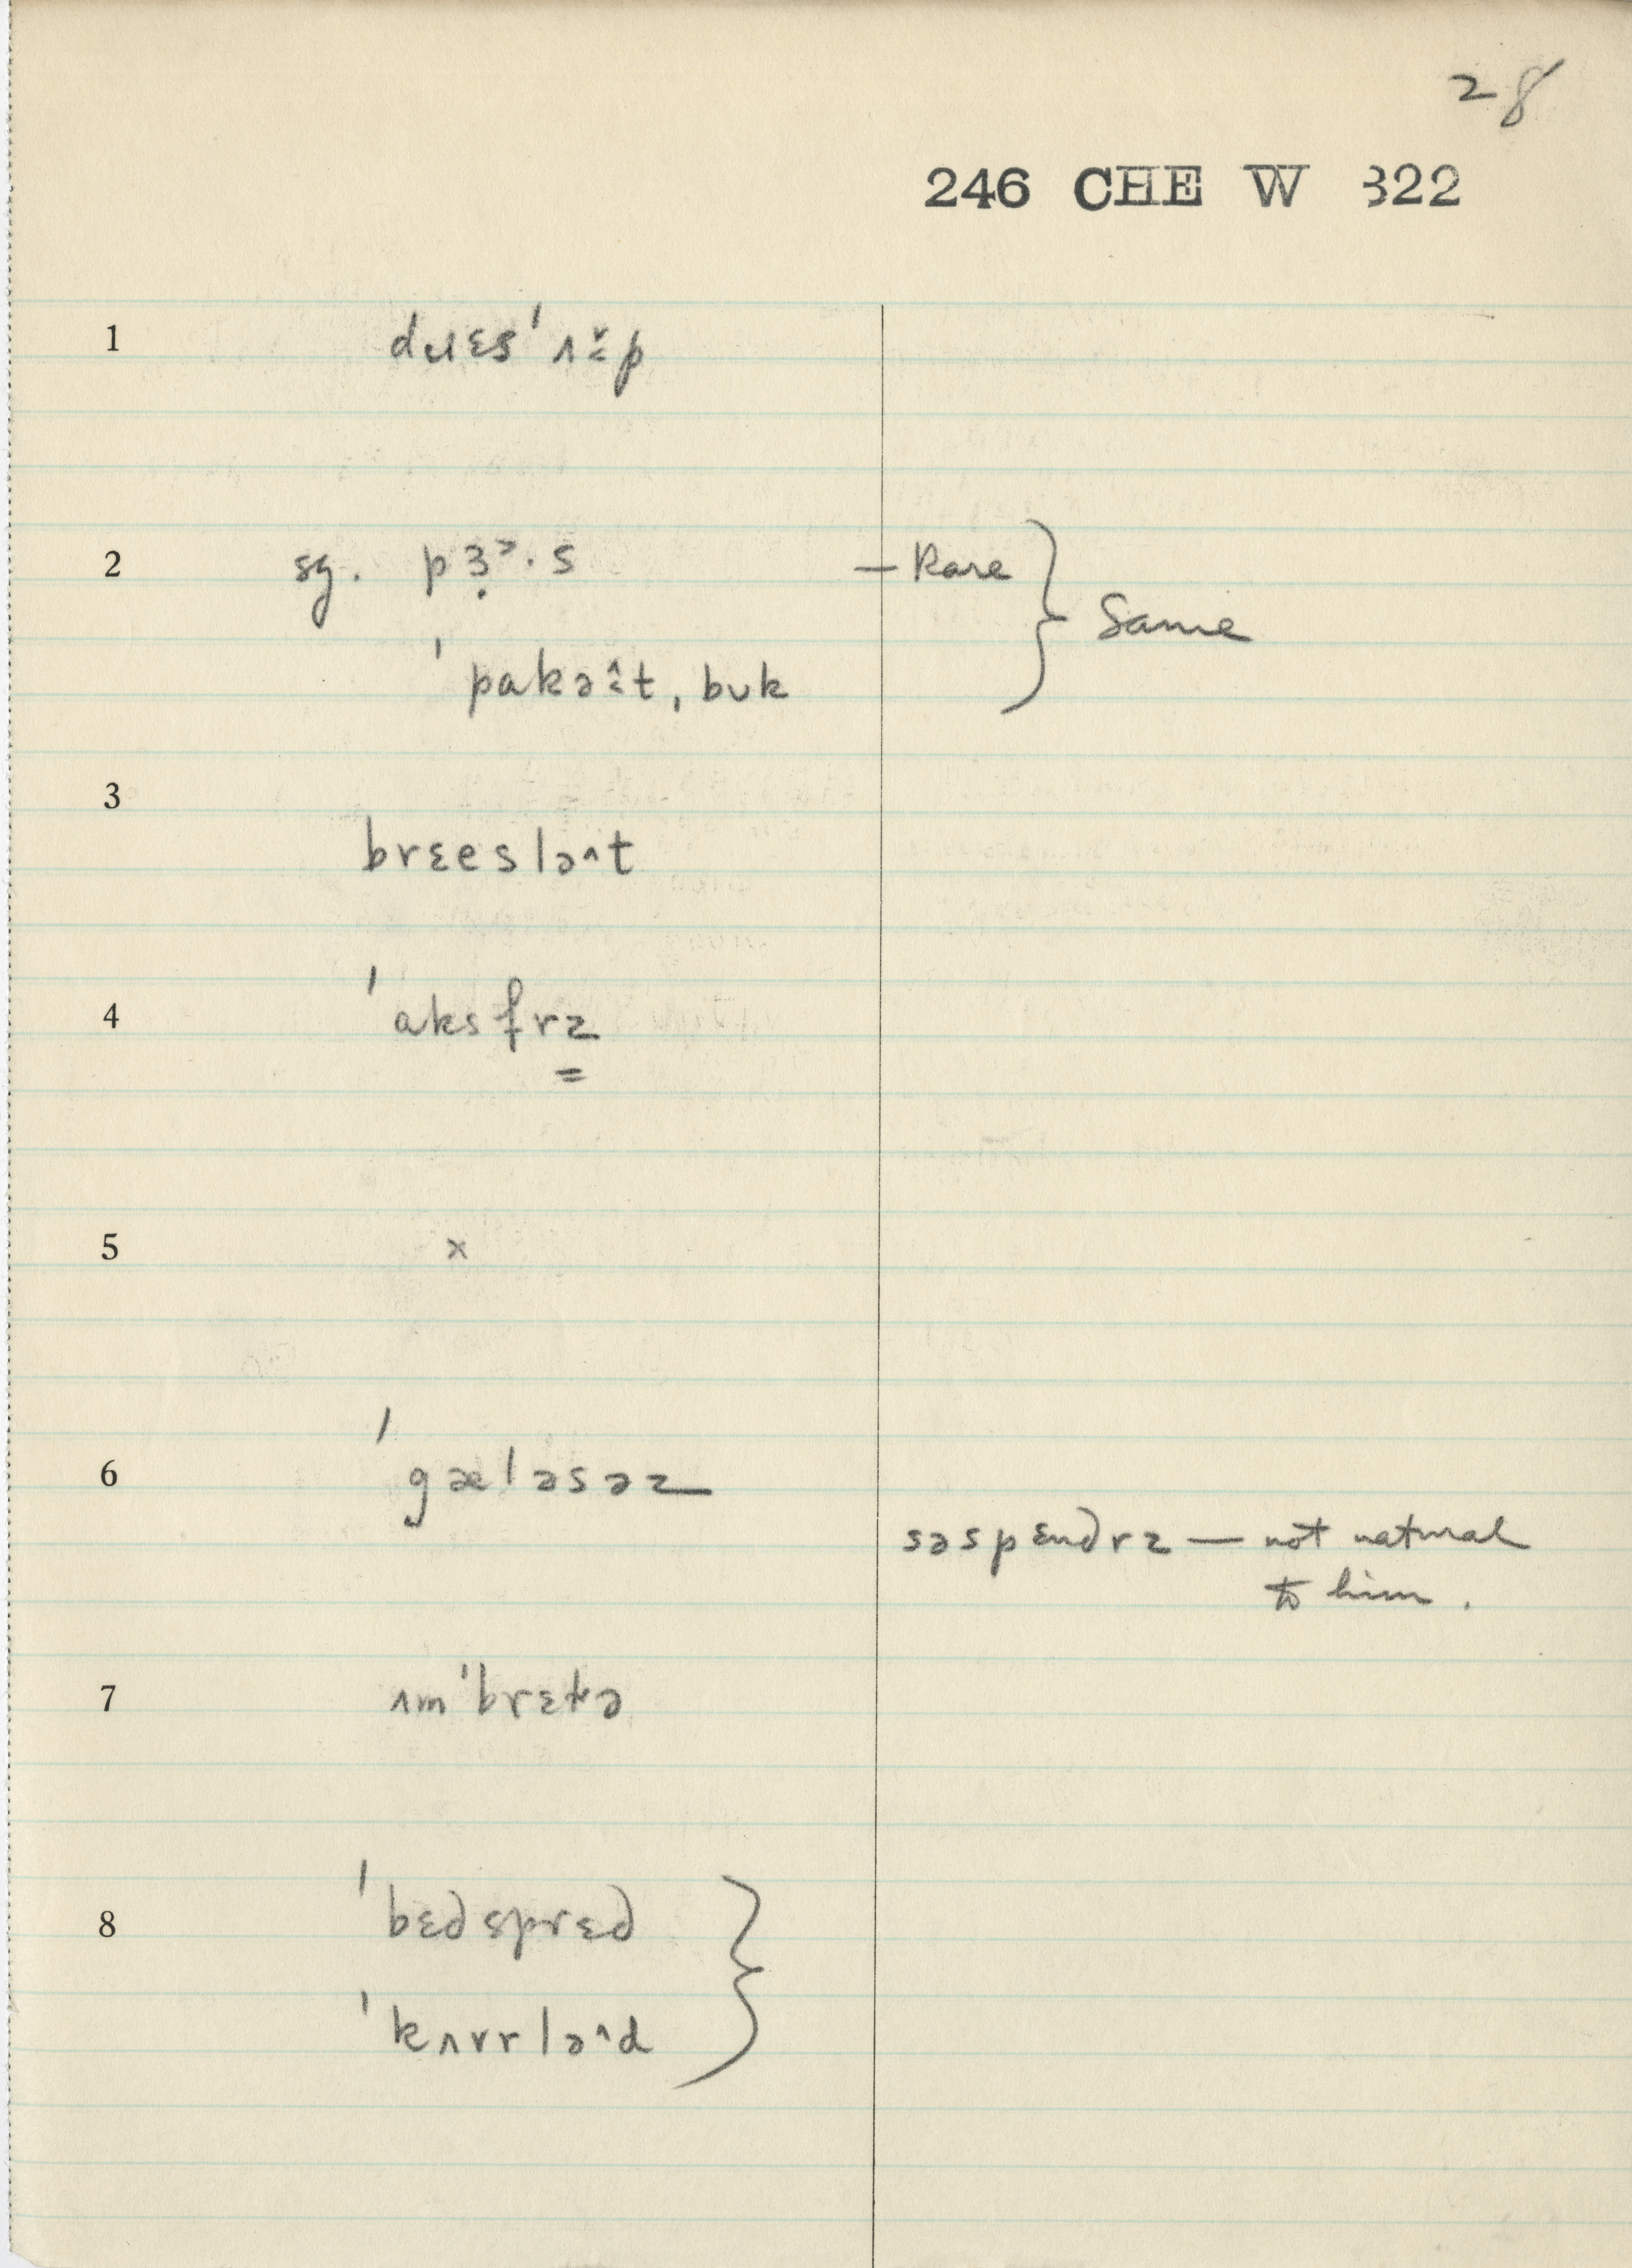 28
246 CHE W 322
1 dɹɛs ˈʌ̌p
2 sg. pɜ̣ɚ·s — Rare
Same
ˈpakət, bʊk
3 brɛeslə^t
4 ˈaksfrz
5 x
6 ˈgæləsəz
səspɛndrz — not natural
to him.
7 ʌmˈbrɛlə
8 ˈbɛdsprɛd
ˈkʌvrlə^d